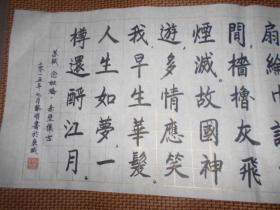 扇綸巾談
間檣櫓灰飛
煙滅故國神
遊,多情應笑
我早生華髮
人生如夢一
樽還酹江月.
蘇軾 念奴嬌·赤壁懷古
二零一五年七月